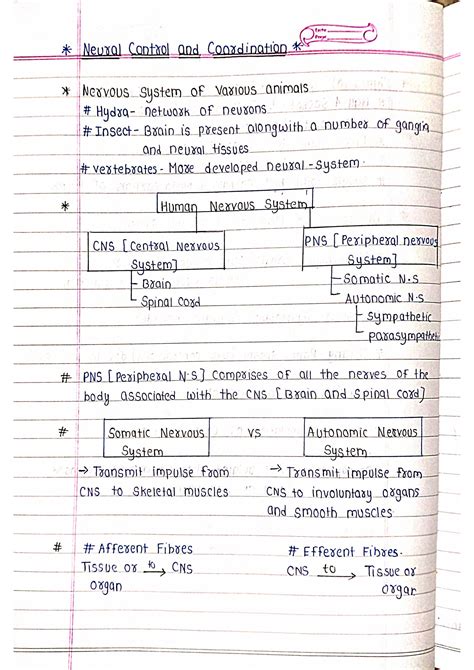 * Neural Control and Coordination *
* Nervous System of Various animals
# Hydra- network of neurons
# Insect- Brain is present alongwith a number of ganglia
and neural tissues
# Vertebrates- More developed neural-System.
* Human Nervous System
CNS [Central Nervous System]
Brain
Spinal Cord
PNS [Peripheral nervous System]
Somatic N.S
Autonomic N.S
Sympathetic
parasympathetic
# PNS [Peripheral N.S] Comprises of all the nerves of the
body associated with the CNS [Brain and Spinal cord]
# Somatic Nervous System vs Autonomic Nervous System
→ Transmit impulse from
CNS to Skeletal muscles
→ Transmit impulse from
CNS to involuntary organs
and smooth muscles
# # Afferent Fibres
Tissue or to → CNS
organ
# Efferent Fibres.
CNS to → Tissue or
organ